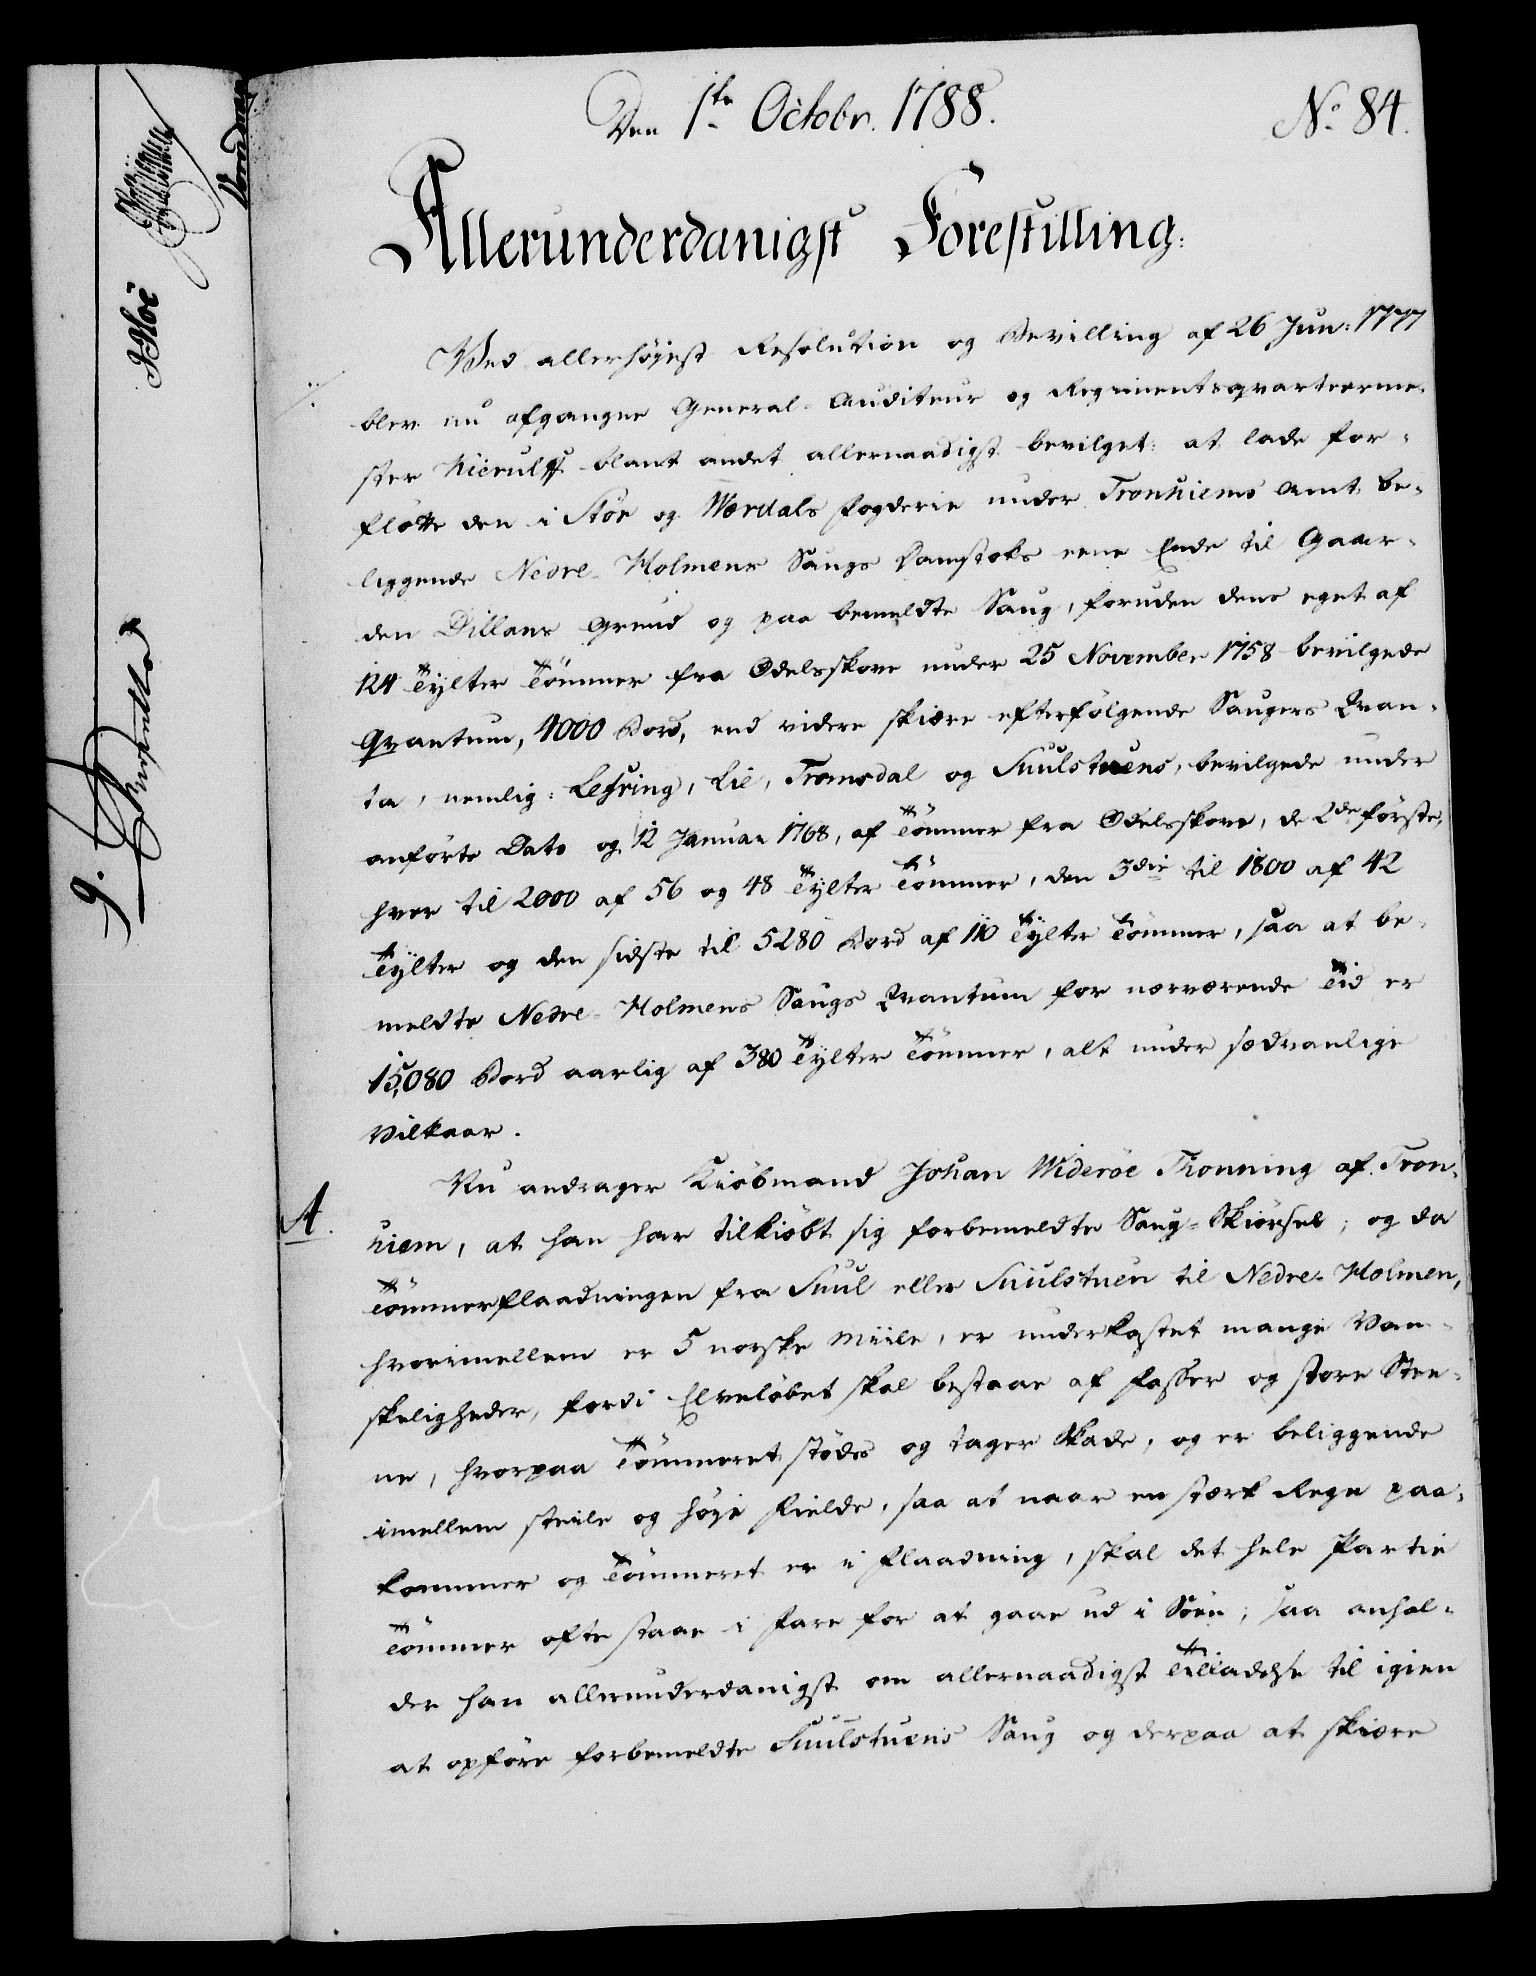 Den 1ste Octobr. 1788.
No. 84.
Allerunderdanigst Forestilling.
Ved allerhøjest Resolution og Bevilling af 26 Jun: 1777
blev nu afgangne General-Auditeur og Regimentsqvarteerme-
ster Hierulff blant andet allernaadigst bevilget: at lade for-
fløtte den i Stør og Værdals Fogderie under Tronhiems Amt be-
liggende Nedre-Holmens Saugs Damstoks eene Ende til Gaar-
den Dillans Grund og paa bemeldte Saug, foruden dens eget af
124 Tylter Tømmer fra Odelsskove under 25 November 1758 bevilgede
Qvantum, 4000 Bord, end videre skiære efterfølgende Saugers Qvan-
ta, nemlig: Lefring, Lie, Tromsdal og Suulstuens, bevilgede under
anførte Dato og 12 Januar 1768, af Tømmer fra Odelsskove, de 2de første,
hver til 2000 af 56 og 48 Tylter Tømmer, den 3die til 1800 af 42
Tylter og den sidste til 5280 Bord af 110 Tylter Tømmer, saa at be-
meldte Nedre-Holmens Saugs Qvantum for nærværende Tid er
15,080 Bord aarlig af 380 Tylter Tømmer, alt under sædvanlige
Vilkaar.
A.
Nu andrager Kiøbmand Johan Widerøe Thonning af Tron-
hiem, at han har tilkiøbt sig forbemeldte Saug-Skiørsel; og da
Tømmerflaadningen fra Suul eller Suulstuen til Nedre-Holmen,
hvorimellem er 5 norske Miile, er underkastet mange Van-
skeligheder, fordi Elveløbet skal bestaae af Fosser og store Stee-
ne, hvorpaa Tømmeret stødes og tager Skade, og er beliggende
imellem steile og høje Fielde, saa at naar en stærk Regn paa-
kommer og Tømmeret er i Flaadning, skal det hele Partie
Tømmer ofte staae i Fare for at gaae ud i Søen; saa anhol-
der han allerunderdanigst om allernaadigst Tilladelse til igien
at opføre forbemeldte Suulstuens Saug og derpaa at skiære